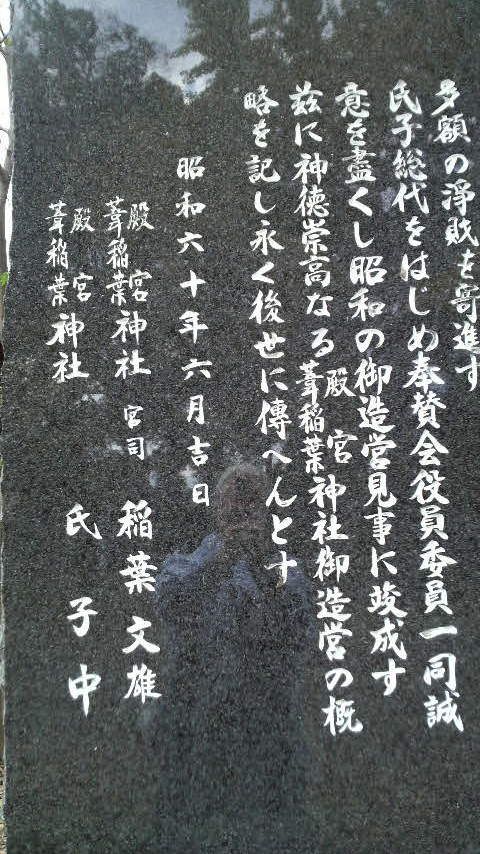 多額の浄賍を寄進す
氏子総代をはじめ奉賛会役員委員一同誠
意を盡くし昭和の御造営見事に竣成す
茲に神德崇高なる殿宮葦稲葉神社御造営の概
略を記し永く後世に傳へんとす
昭和六十年六月吉日
殿宮葦稲葉神社 宮司 稲葉文雄
殿宮葦稲葉神社 氏子中